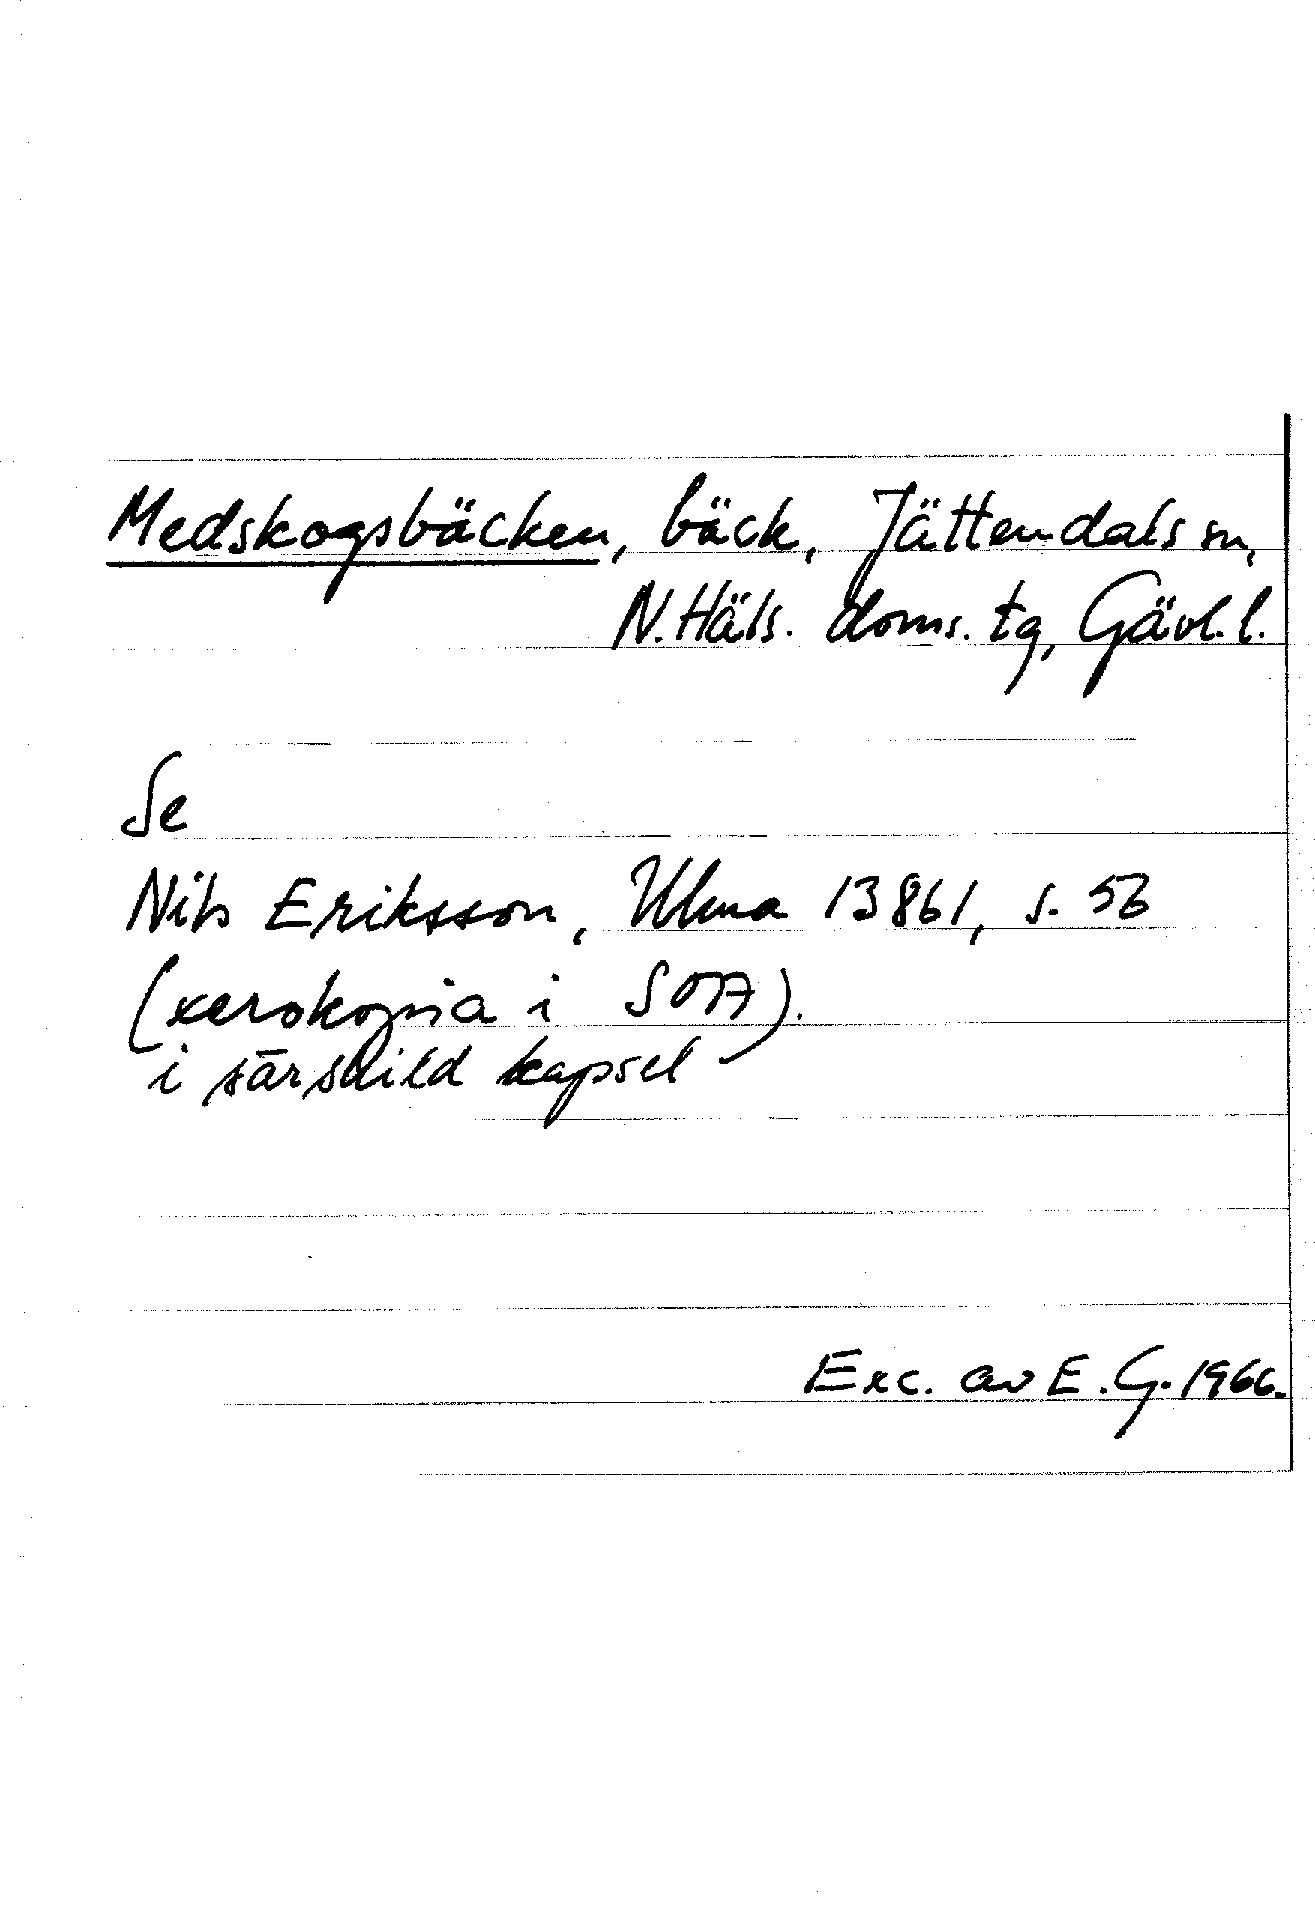 Medskogsbäcken, bäck, Jättendals sn,
N. Häls. doms. tg, Gävl. l.
Se
Nils Eriksson, Ulma 13861, s. 53
(xerokopia i SOA).
i särskild kapsel
Exc. av E.G. 1966.